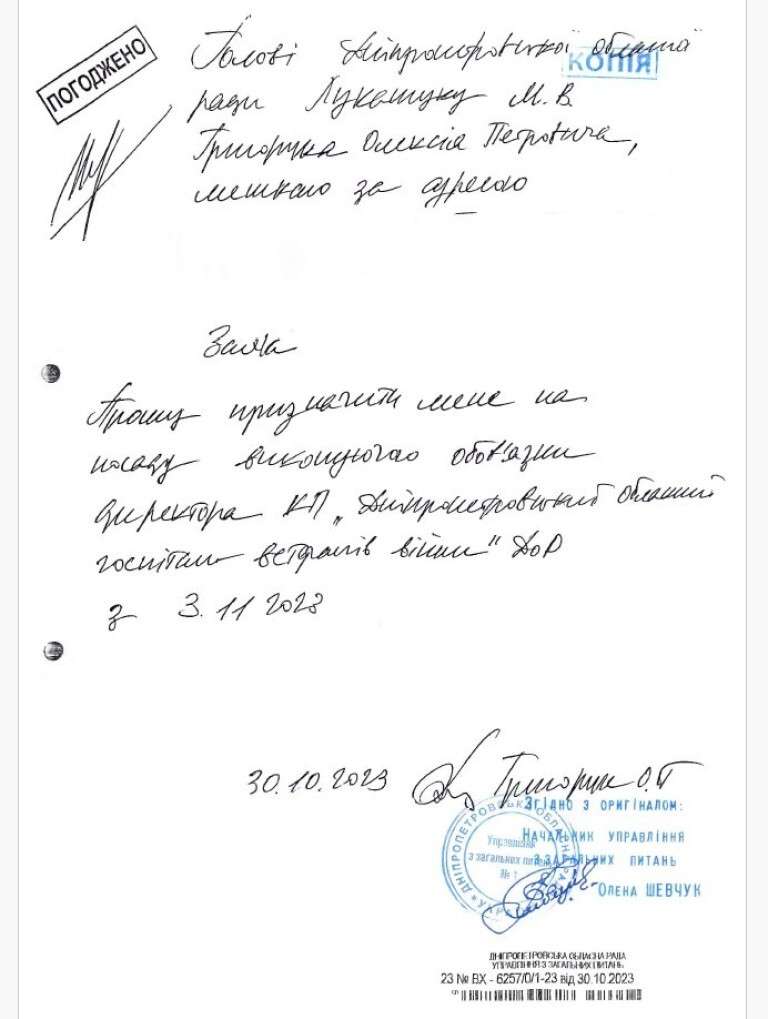 ПОГОДЖЕНО
Голові Дніпропетровської обласної
КОПІЯ
ради Лукашуку М. В.
Григорука Олексія Петровича,
мешкаю за адресою
Заява
Прошу призначити мене на
посаду виконуючого обов'язки
директора КП „Дніпропетровський обласний
госпіталь ветеранів війни" ДОР
з 3.11 2023
30.10.2023 Григорук О.П
Згідно з оригіналом:
Начальник управління
з загальних питань
Олена ШЕВЧУК
ДНІПРОПЕТРОВСЬКА ОБЛАСНА РАДА
Управління
з загальних питань
№ 1
УКРАЇНА
ДНІПРОПЕТРОВСЬКА ОБЛАСНА РАДА
УПРАВЛІННЯ З ЗАГАЛЬНИХ ПИТАНЬ
23 № ВХ - 6257/0/1-23 від 30.10.2023